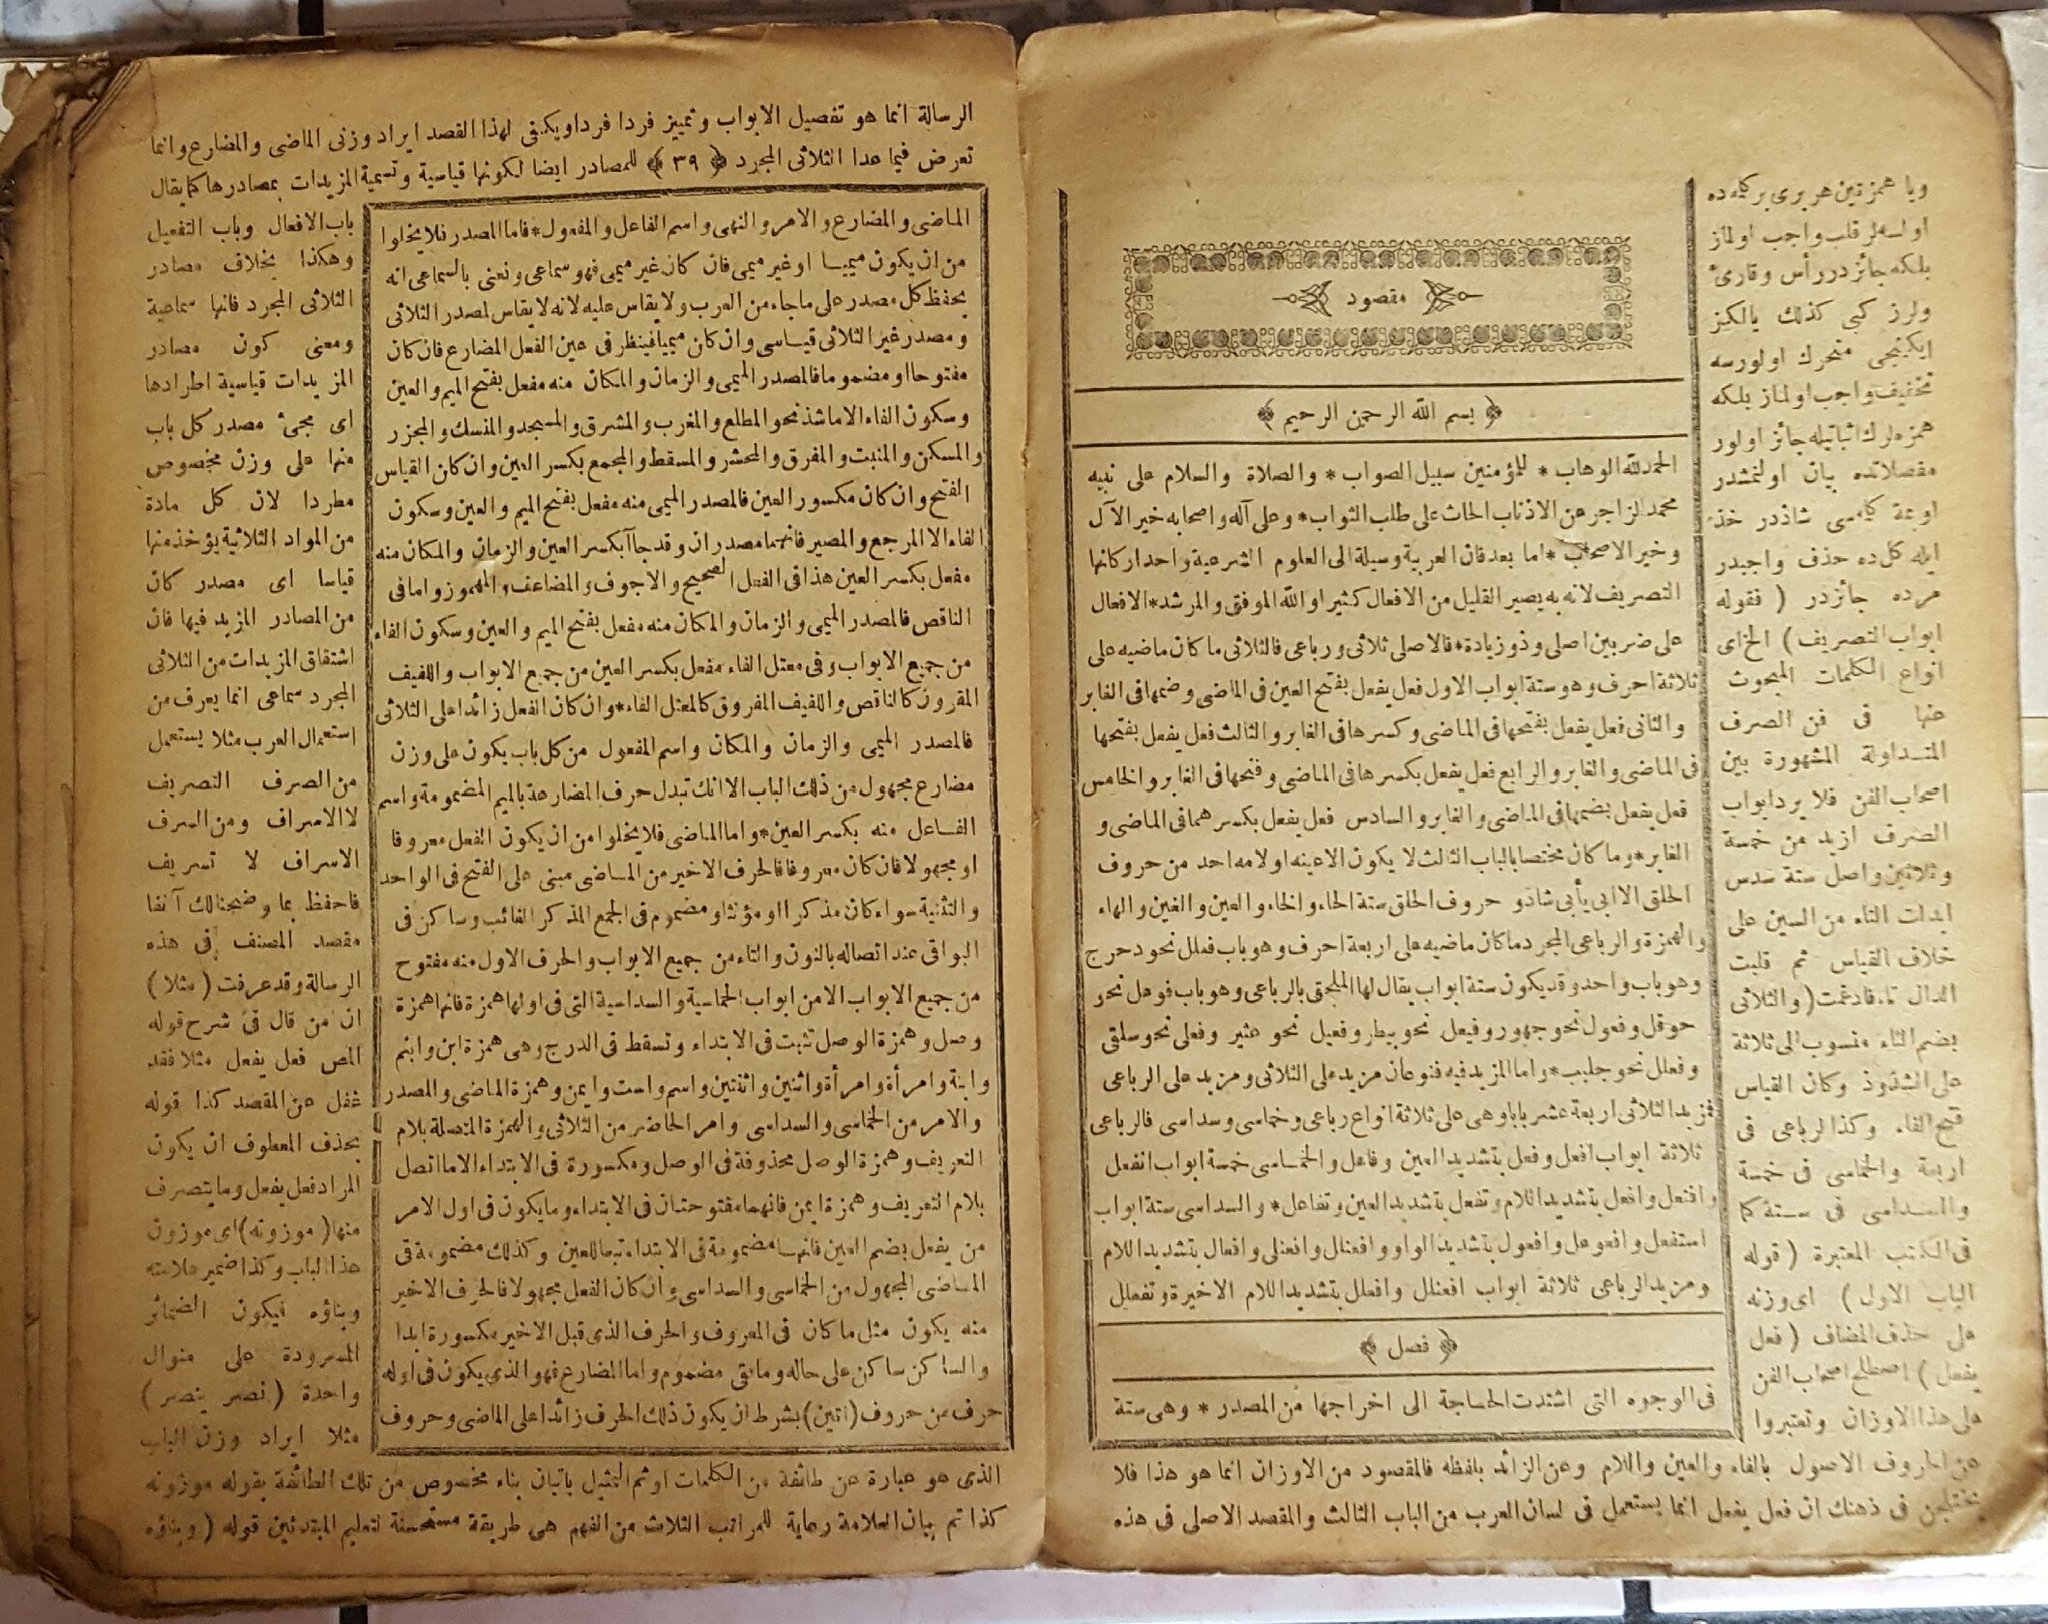 مقصود
﴿ بسم الله الرحمن الرحيم ﴾
الحمدلله الوهاب * للمؤمنين سبيل الصواب * والصلاة والسلام على نبيه
محمد الزاجر عن الاذناب الحاث على طلب الثواب * وعلى آله واصحابه خير الآل
وخير الاصحاب * اما بعد فان العربية وسيلة الى العلوم الشرعية واحد اركانها
التصريف لانه به يصير القليل من الافعال كثيرا والله الموفق والمرشد * الافعال
على ضربين اصلى وذو زيادة * فالاصلى ثلاثى ورباعى فالثلاثى ما كان ماضيه على
ثلاثة احرف وهو ستة ابواب الاول فعل يفعل بفتح العين فى الماضى وضمها فى الغابر
والثانى فعل يفعل بفتحها فى الماضى وكسرها فى الغابر والثالث فعل يفعل بفتحها
فى الماضى والغابر والرابع فعل يفعل بكسرها فى الماضى وفتحها فى الغابر والخامس
فعل يفعل بضمها فى الماضى والغابر والسادس فعل يفعل بكسرهما فى الماضى و
الغابر * وما كان مختصا بالباب الثالث لا يكون الا عينه او لامه احد من حروف
الحلق الا ابى يأبى شاذو حروف الحلق ستة الحاء والخاء والعين والغين والهاء
والهمزة والرباعى المجرد ما كان ماضيه على اربعة احرف وهو باب فعلل نحو دحرج
وهو باب واحد وقد يكون ستة ابواب يقال لها الملحق بالرباعى وهو باب فوعل نحو
حوقل وفعول نحو جهور وفيعل نحو بيطر وفعيل نحو عثير وفعلى نحو سلقى
وفعلل نحو جلبب * واما المزيد فيه فنوعان مزيد على الثلاثى ومزيد على الرباعى
فمزيد الثلاثى اربعة عشر بابا وهى على ثلاثة انواع رباعى وخماسى وسداسى فالرباعى
ثلاثة ابواب افعل وفعل بتشديد العين وفاعل والخماسى خمسة ابواب انفعل
وافتعل وافعل بتشديد اللام وتفعل بتشديد العين وتفاعل * والسداسى ستة ابواب
استفعل وافعوعل وافعول بتشديد الواو وافعنلل وافعنلى وافعال بتشديد اللام
ومزيد الرباعى ثلاثة ابواب افعنلل وافعلل بتشديد اللام الاخيرة وتفعلل
﴿ فصل ﴾
فى الوجوه التى اشتدت الحاجة الى اخراجها من المصدر * وهى ستة
وبا همزتين هربرى بركله ده
اولسه لر قلب واجب اولماز
بلكه جائزدر رأس وقارئ
ولرز كبى كذلك يالكز
ايكينجى متحرك اولورسه
تخفيف واجب اولماز بلكه
همزه لرك اثباتيله جائز اولور
مفصلاتده بيان اولنمشدر
مرده جائزدر ( فقوله
ابواب التصريف ) الخ اى
انواع الكلمات المبحوث
عنها فى فن الصرف
المتداولة المشهورة بين
اصحاب الفن فلا يرد ابواب
الصرف ازيد من خمسة
وثلاثين واصل ستة سدس
ابدلت التاء من السين على
خلاف القياس ثم قلبت
الدال تاء فادغمت ( والثلاثى
بضم الثاء منسوب الى ثلاثة
على الشذوذ وكان القياس
فتح الفاء وكذا الرباعى فى
اربعة والخماسى فى خمسة
والسداسى فى ستة كما
فى الكتب المعتبرة ( قوله
الباب الاول ) اى وزنه
على حذف المضاف ( فعل
يفعل ) اصطلح اصحاب الفن
على هذا الاوزان وتعتبروا
عن الحروف الاصول بالفاء والعين واللام وعن الزائد بلفظه فالمقصود من الاوزان انما هو هذا فلا
يختلجن فى ذهنك ان فعل يفعل انما يستعمل فى لسان العرب من الباب الثالث والمقصد الاصلى فى هذه
الرسالة انما هو تفصيل الابواب وتمييز فردا فردا ويكفى لهذا القصد ايراد وزنى الماضى والمضارع وانما
تعرض فيما عدا الثلاثى المجرد ﴿ ٣٩ ﴾ للمصادر ايضا لكونها قياسية وتسمية المزيدات بمصادرها كما يقال
الماضى والمضارع والامر والنهى واسم الفاعل والمفعول * فاما المصدر فلا يخلوا
من ان يكون ميميا او غير ميمى فان كان غير ميمى فهو سماعى ونعنى بالسماعى انه
يحفظ كل مصدر على ما جاء من العرب ولا يقاس عليه لانه لا يقاس لمصدر الثلاثى
ومصدر غير الثلاثى قياسى وان كان ميميا فينظر فى عين الفعل المضارع فان كان
مفتوحا او مضموما فالمصدر الميمى والزمان والمكان منه مفعل بفتح الميم والعين
وسكون الفاء الا ما شذ نحو المطلع والمغرب والمشرق والمسجد والمنسك والمجزر
والمسكن والمنبت والمفرق والمحشر والمسقط والمجمع بكسر العين وان كان القياس
الفتح وان كان مكسور العين فالمصدر الميمى منه مفعل بفتح الميم والعين وسكون
الفاء الا المرجع والمصير فانهما مصدران وقد جاآ بكسر العين والزمان والمكان منه
مفعل بكسر العين هذا فى الفعل الصحيح والاجوف والمضاعف والمهموز واما فى
الناقص فالمصدر الميمى والزمان والمكان منه مفعل بفتح الميم والعين وسكون الفاء
من جميع الابواب وفى معتل الفاء مفعل بكسر العين من جميع الابواب واللفيف
المقرون كالناقص واللفيف المفروق كالمعتل الفاء * وان كان الفعل زائدا على الثلاثى
فالمصدر الميمى والزمان والمكان واسم المفعول من كل باب يكون على وزن
مضارع مجهول من ذلك الباب الا انك تبدل حرف المضارعة بالميم المضمومة واسم
الفاعل منه بكسر العين * واما الماضى فلا يخلوا من ان يكون الفعل معروفا
او مجهولا فان كان معروفا فالحرف الاخير من الماضى مبنى على الفتح فى الواحد
والتثنية سواء كان مذكرا او مؤنثا ومضموم فى الجمع المذكر الغائب وساكن فى
البواقى عند اتصاله بالنون والتاء من جميع الابواب والحرف الاول منه مفتوح
من جميع الابواب الا من ابواب الخماسية والسداسية التى فى اولها همزة فانها همزة
وصل وهمزة الوصل تثبت فى الابتداء وتسقط فى الدرج وهى همزة ابن وابنم
وابنة وامرأة وامرأ واثنين واثنتين واسم واست وايمن وهمزة الماضى والمصدر
والامر من الخماسى والسداسى وامر الحاضر من الثلاثى والهمزة المتصلة بلام
التعريف وهمزة الوصل محذوفة فى الوصل ومكسورة فى الابتداء الا ما اتصل
بلام التعريف وهمزة ايمن فانهما مفتوحتان فى الابتداء وما يكون فى اول الامر
من يفعل بضم العين فانها مضمومة فى الابتداء تبعا للعين وكذلك مضمومة فى
الماضى المجهول من الخماسى والسداسى وان كان الفعل مجهولا فالحرف الاخير
منه يكون مثل ما كان فى المعروف والحرف الذى قبل الاخير مكسورة ابدا
والساكن ساكن على حاله وما بقى مضموم واما المضارع فهو الذى يكون فى اوله
حرف من حروف ( اتين ) بشرط ان يكون ذلك الحرف زائدا على الماضى وحروف
باب الافعال وباب التفعيل
وهكذا بخلاف مصادر
الثلاثى المجرد فانها سماعية
ومعنى كون مصادر
المزيدات قياسية اطرادها
اى مجئ مصدر كل باب
منها على وزن مخصوص
مطردا لان كل مادة
من المواد الثلاثية يؤخذ منها
قياسا اى مصدر كان
من المصادر المزيد فيها فان
اشتقاق المزيدات من الثلاثى
المجرد سماعى انما يعرف من
استعمال العرب مثلا يستعمل
من الصرف التصريف
لا الاصراف ومن السرف
الاسراف لا تسريف
فاحفظ بما وضحنالك آنفا
مقصد المصنف فى هذه
الرسالة وقد عرفت ( مثلا )
ان من قال فى شرح قوله
المص فعل يفعل مثلا فقد
غفل عن المقصد كذا قوله
بحذف المعطوف ان يكون
المراد فعل يفعل وما يتصرف
منها ( موزونه ) اى موزون
هذا الباب وكذا ضمير علامته
وبناؤه فيكون الضمائر
المسرودة على منوال
واحدة ( نصر ينصر )
مثلا ايراد وزن الباب
الذى هو عبارة عن طائفة من الكلمات اوثم التمثيل باتيان بناء مخصوص من تلك الطائفة بقوله موزونه
كذا ثم بيان العلامة رعاية للمراتب الثلاث من الفهم هى طريقة مستحسنة لتعليم المبتدئين قوله ( وبناؤه